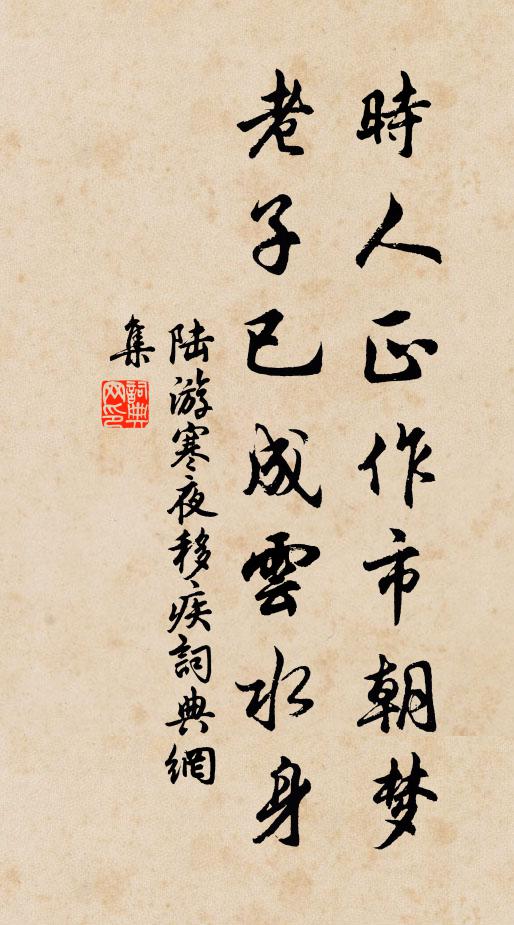 時人正作市朝梦
老子已成雲水身
陆游寒夜移疾詞典網
集
詞典网印